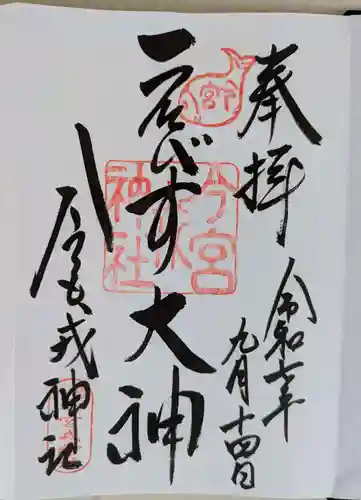 奉拝
令和六年
九月十四日
ゑびす大神
今宮戎神社
宮
今宮戎神社